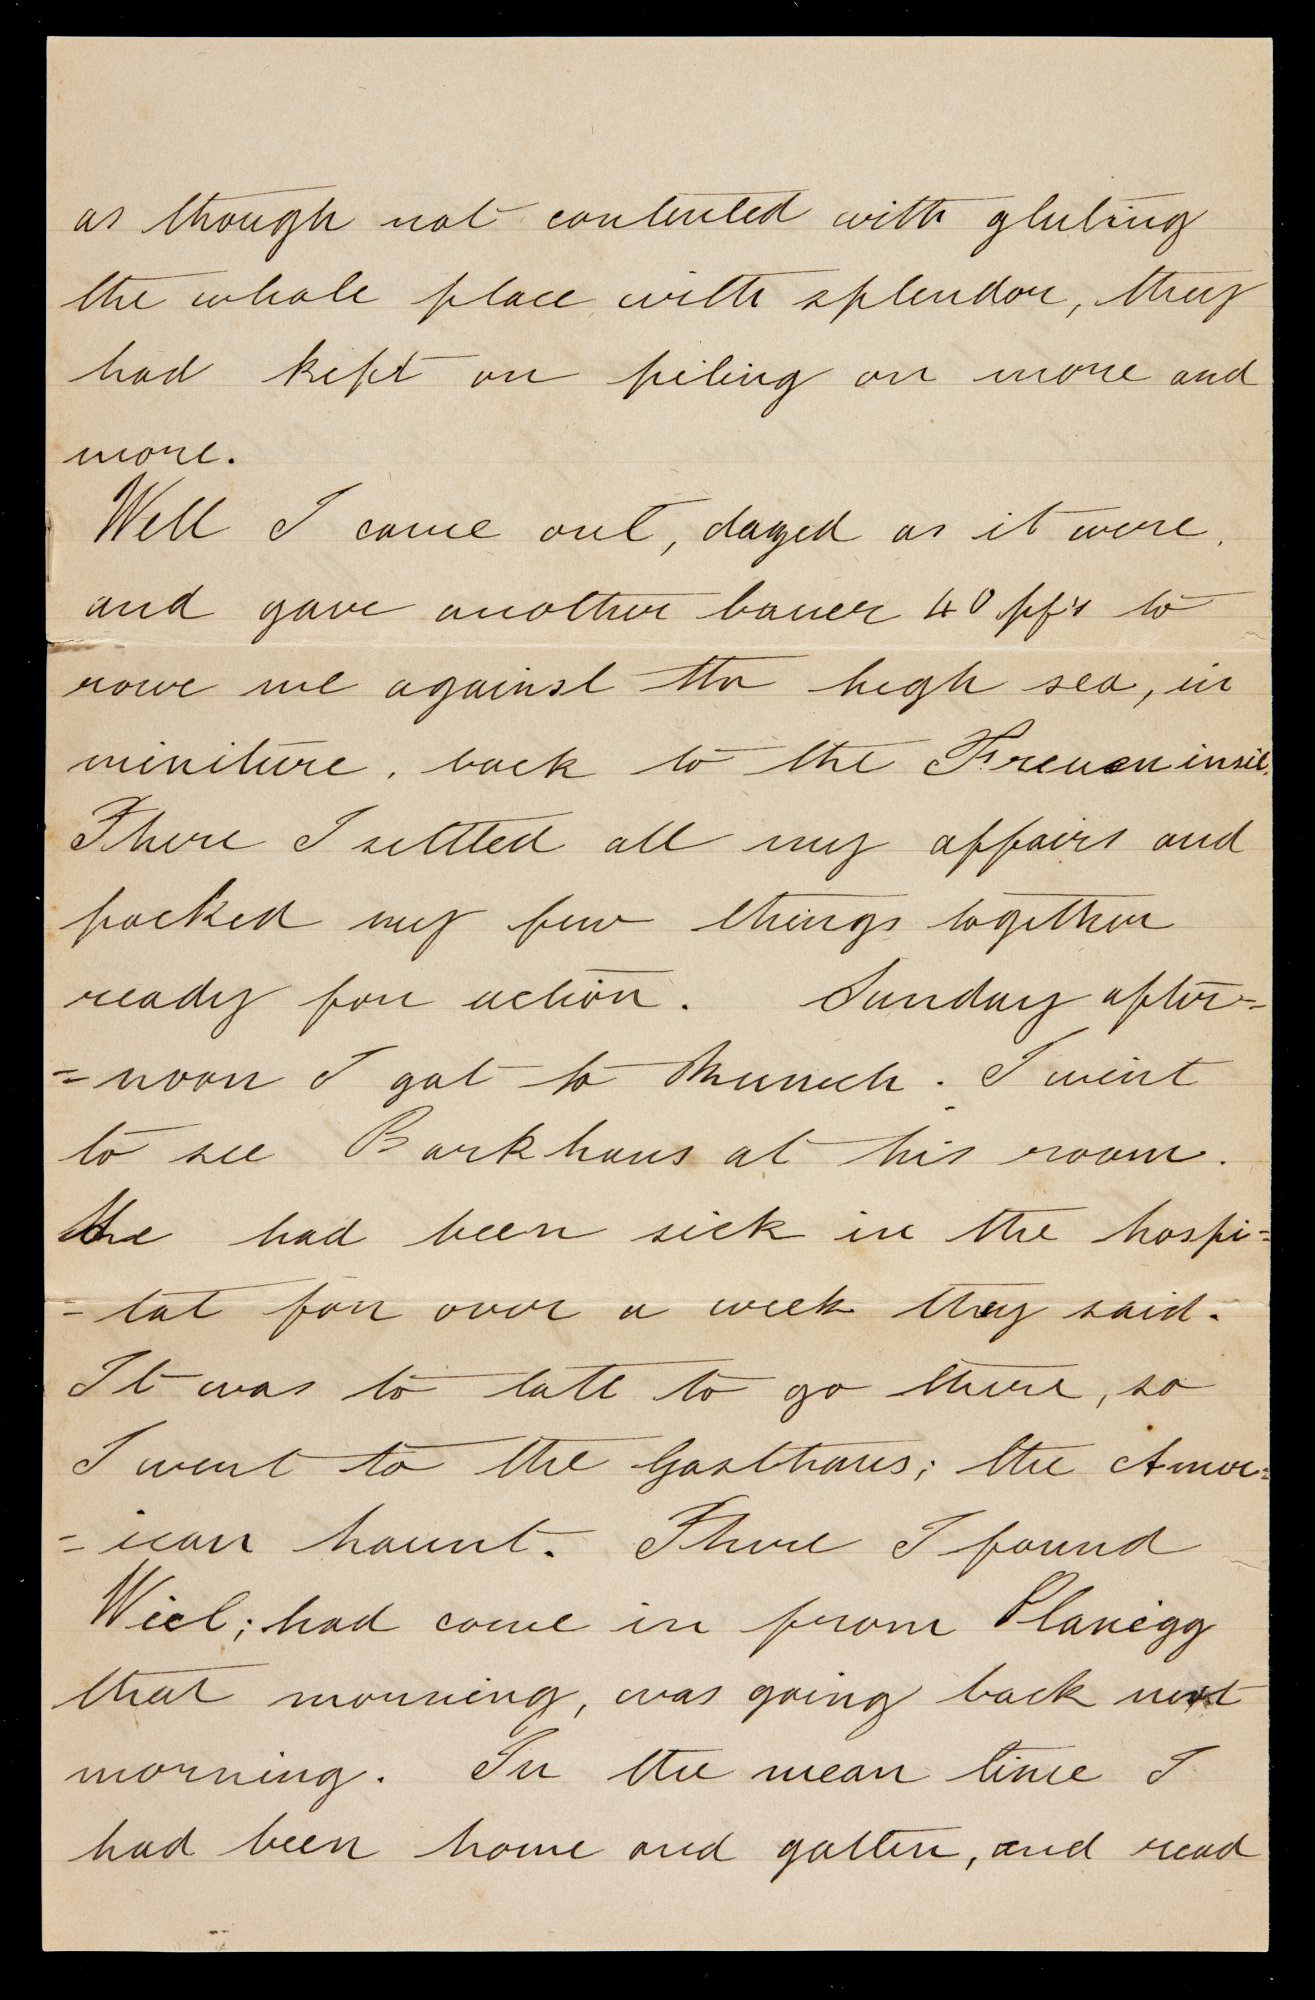 as though not contented with gluting
the whole place with splendor, they
had kept on piling on more and
more.
Well I came out, dazed as it were,
and gave another bauer 40 pf's to
rowe me against the high sea, in
miniture, back to the Fraueninsil.
There I settled all my affairs and
packed my few things together
ready for action. Sunday after=
=noon I got to Munich. I went
to see Barkhaus at his room.
He had been sick in the hospi=
=tal for over a week they said.
It was to late to go there, so
I went to the Gasthaus; the Amer=
=ican haunt. There I found
Wiel; had come in from Planegg
that morning, was going back next
morning. In the mean time I
had been home and gotten, and read